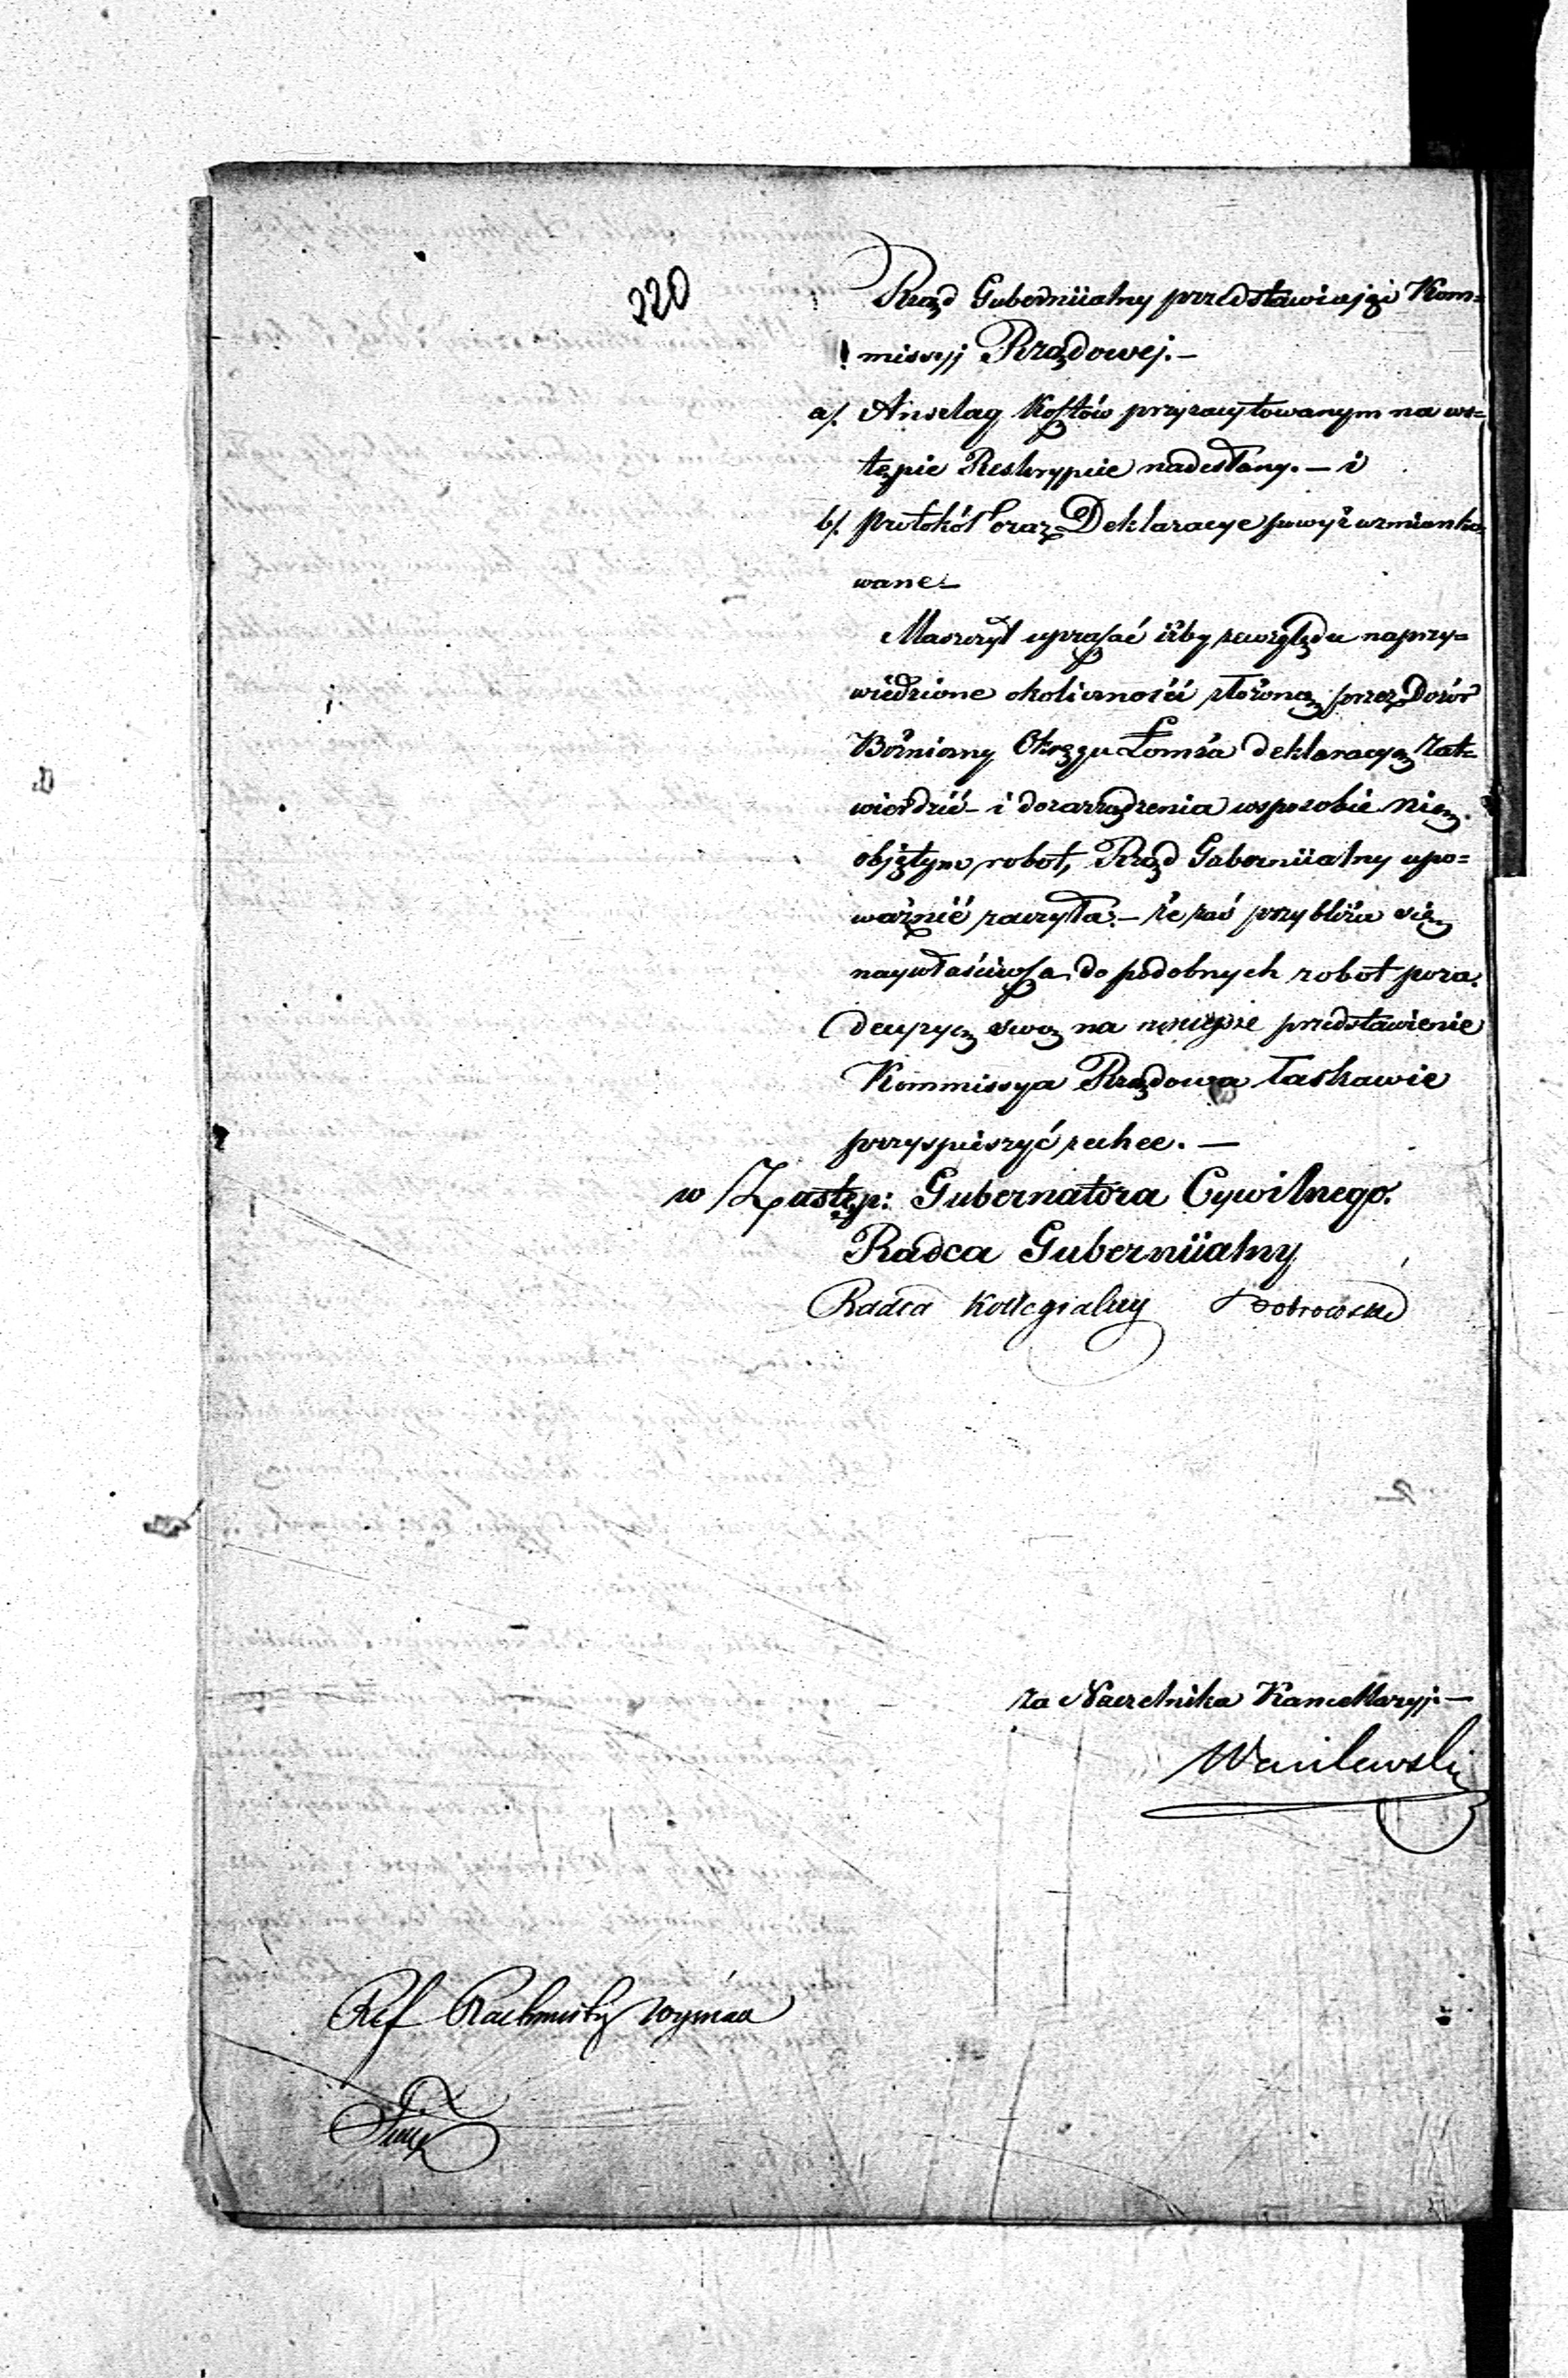 220
Rząd Gubernijalny przedstawiając Kom=
missyj Rządowej.—
a/. Anszlag Kosztów przyzacytowanym na ws=
tępie Reskrypcie nadesłany. — i
b/. protokół oraz Deklaracye powyż wzmianko=
wane.—
Ma zaszczyt upraszać iżby ze względu na przy=
wiedzione okoliczności złożoną przez Dozór
Bóżniczny Okręgu Łomża deklaracyą zat=
wierdzić — i do zarządzenia w sposobie nią
objętym robot, Rząd Gubernijalny upo=
ważnić raczyła: — że zaś przybliża się
naywłaściwsza do podobnych robot pora.
decyzyą swoą na ninieysze przedstawienie
Kommissya Rządowa łaskawie
przyspieszyć zechce. —
w Zastęp: Gubernatora Cywilnego.
Radca Gubernijalny
Radca Kollegialny Dobrowolski
za Naczelnika Kancellaryj.—
Wasilewski
Ref